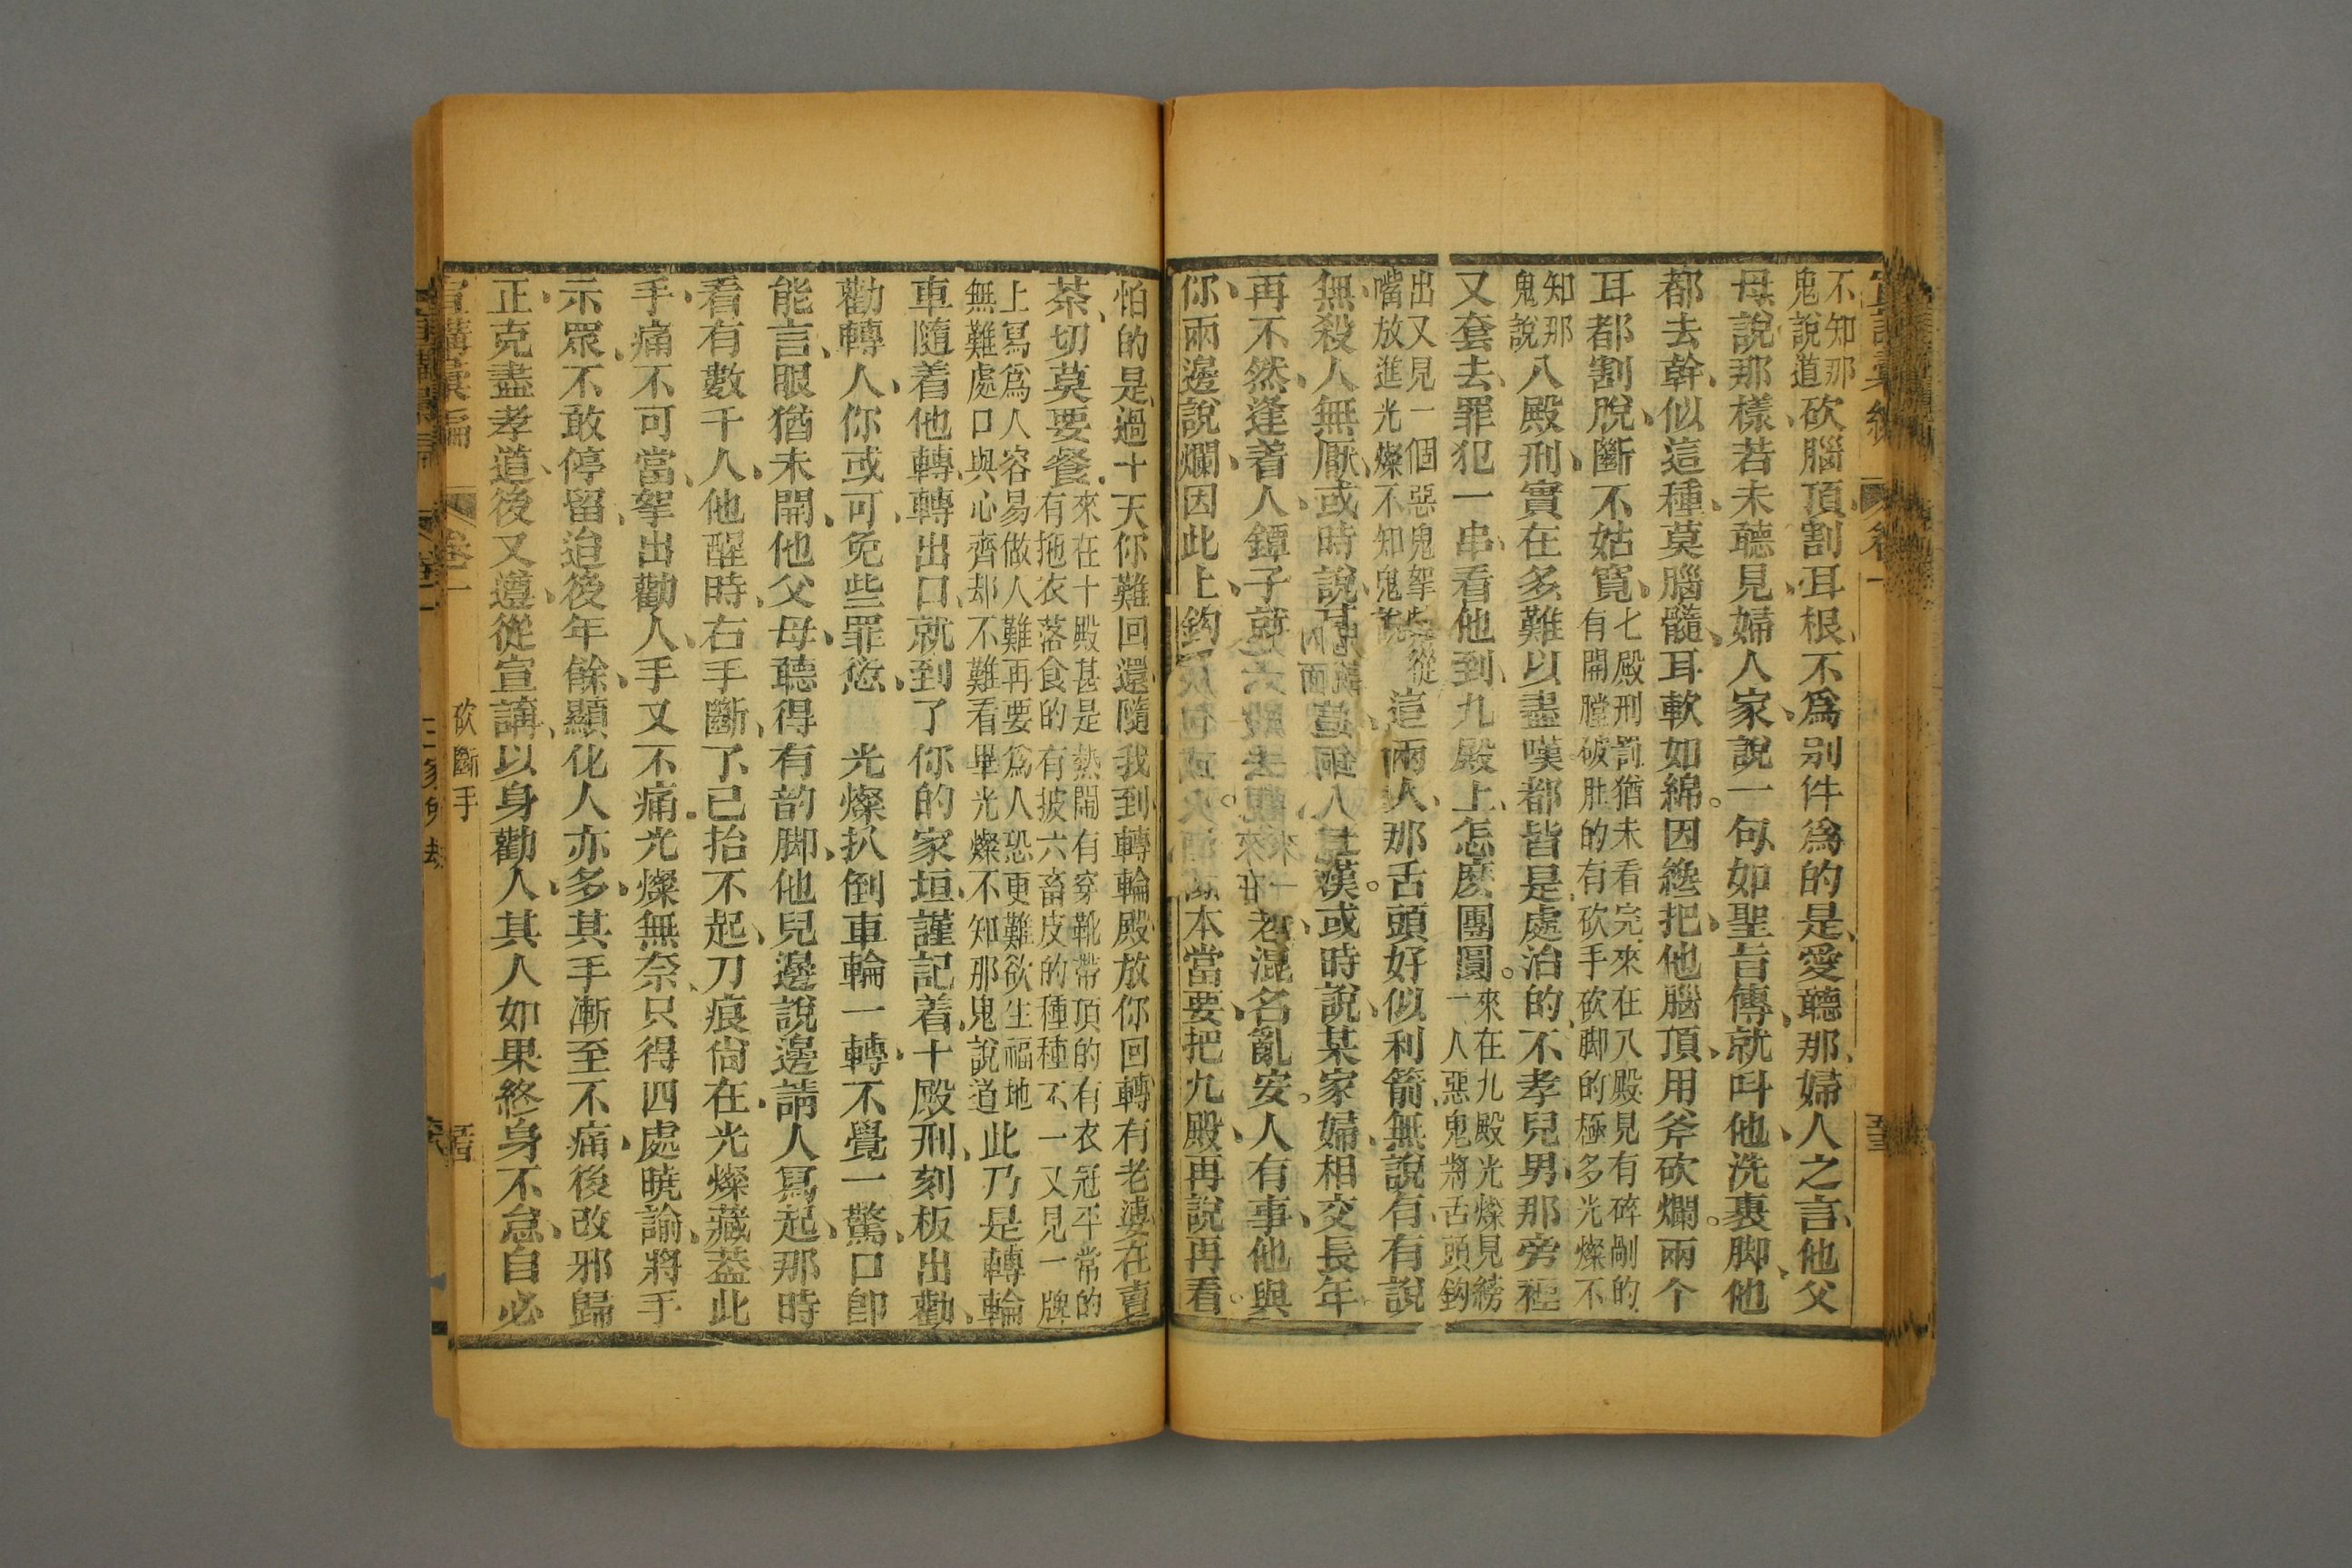 宣講彙編 卷一
不知那
鬼說道
砍腦頂割耳根不為別件為的是愛聽那婦人之言他父
母說那樣若未聽見婦人家說一句如聖旨傳就呌他洗裹脚他
都去幹似這種莫腦髓耳軟如綿因纔把他腦頂用斧砍爛兩个
耳都割脫斷不姑寬
七殿刑罰猶未看完來在八殿見有碎剮的
有開膛破肚的有砍手砍脚的極多光燦不
知那
鬼說
八殿刑實在多難以盡嘆都皆是處治的不孝兒男那旁裡
又套去罪犯一串看他到九殿上怎麽團圓
來在九殿光燦見綁
一人惡鬼將舌頭鈎
出又見一個惡鬼拏
嘴放進光燦不知鬼說
從
這兩人那舌頭好似利箭無說有有說
無殺人無厭或時說某漢或時說某家婦相交長年
再不然逢着人鐔子就老混名亂安人有事他與
你兩邊說爛因此上鈎
本當要把九殿再說再看
怕的是過十天你難回還隨我到轉輪殿放你回轉有老婆在賣
茶切莫要餐
來在十殿甚是熱閙有穿靴帶頂的有衣冠平常的
有拖衣落食的有披六畜皮的種種不一又見一牌
上寫為人容易做人難再要為人恐更難欲生福地
無難處口與心齊却不難看畢光燦不知那鬼說道
此乃是轉輪
車隨着他轉轉出口就到了你的家垣謹記着十殿刑刻板出勸
勸轉人你或可免些罪愆　光燦扒倒車輪一轉不覺一驚口卽
能言眼猶未開他父母聽得有韵脚他兒邊說邊請人寫起那時
看有數千人他醒時右手斷了已抬不起刀痕尙在光燦藏葢此
手痛不可當拏出勸人手又不痛光燦無奈只得四處曉諭將手
示眾不敢停留迨後年餘顯化人亦多其手漸至不痛後改邪歸
正克盡孝道後又遵從宣講以身勸人其人如果終身不怠自必
宣講彙編 卷一 砍斷手